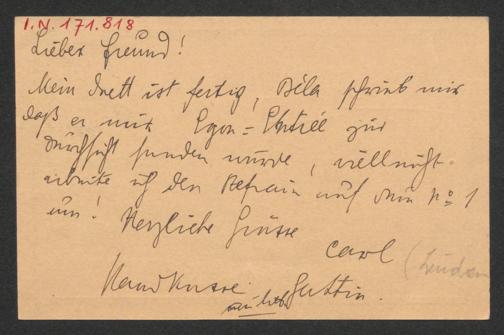 I.N. 171.818
Lieber Freund!
Mein Duett ist fertig, Béla schrieb mir
daß er mir Egon = Entrée zur
Durchsicht senden würde, vielleicht
arbeite ich den Refrain auf dem No 1
um! Herzliche Grüsse
Carl
Handkusse Gattin.